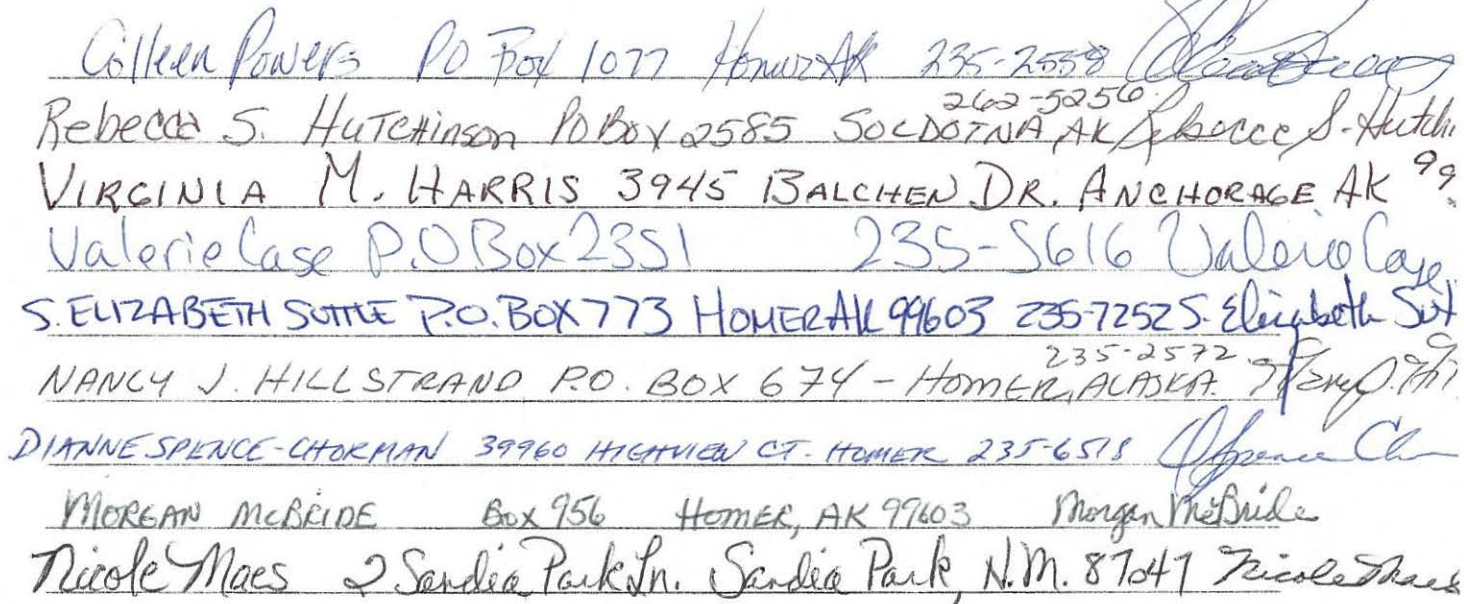 Colleen Powers PO Box 1077 Homer AK 235-2558
262-5256
Rebecca S. HuTCHinson PO BOX 2585 SOLDOTNA, AK Rebecca S. Hutchi
VIRGINIA M. HARRIS 3945 BALCHEN DR. ANCHORAGE AK 99
Valerie Case P.O Box 2351 235-5616 Valerie Case
S. ELIZABETH SUTTLE P.O. BOX 773 HOMER AK 99603 235-7252 S. Elizabeth Sutt
235-2572
NANCY J. HILLSTRAND P.O. BOX 674 - HOMER, ALASKA. Nancy J. Hil
DIANNE SPENCE-CHORMAN 39960 HIGHVIEW CT. HOMER 235-6518
MORGAN McBRIDE BOX 956 HOMER, AK 99603 Morgan McBride
Nicole Maes 2 Sandia Park Ln. Sandia Park, N.M. 87047 Nicole Maes